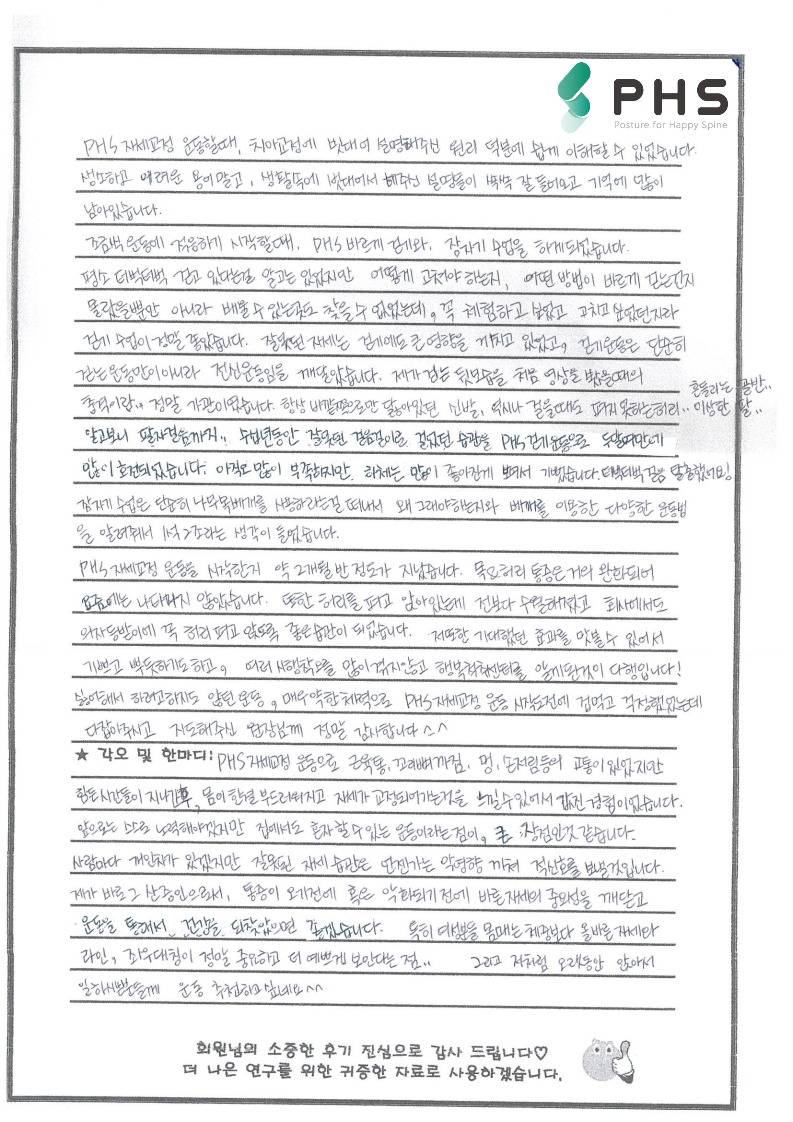 PHS
Posture for Happy Spine
PHS 자세교정 운동할때, 치아교정에 빗대어 설명해주신 원리 덕분에 쉽게 이해할 수 있었습니다.
생소하고 어려운 용어말고, 생활속에 빗대어서 해주신 설명들이 쏙쏙 잘 들어오고 기억에 많이
남아있습니다.
조금씩 운동에 적응하기 시작할때, PHS 바르게 걷기와, 잠자기 수업을 하게되었습니다.
평소 터벅터벅 걷고 있다는걸 알고는 있었지만 어떻게 고쳐야 하는지, 어떤 방법이 바르게 걷는건지
몰랐을뿐만 아니라 배울 수 있는곳도 찾을 수 없었는데, 꼭 체험하고 싶었고 고치고 싶었던지라
걷기 수업이 정말 좋았습니다. 잘못된 자세는 걷기에도 큰 영향을 끼치고 있었고, 걷기운동은 단순히
걷는 운동만이아니라 전신운동임을 깨달았습니다. 제가 걷는 뒷모습을 처음 영상을 봤을때의
충격이란.. 정말 가관이였습니다. 항상 바깥쪽으로만 닳아있던 신발, 역시나 걸을때도 펴지못하는허리.. 이상한 팔..
흔들리는 골반..
알고보니 팔자걸음까지.. 수년동안 잘못된 걸음걸이로 걸었던 습관을 PHS 걷기운동으로 두달여만에
많이 호전되었습니다. 아직도 많이 부족하지만, 하체는 많이 좋아진게 보여서 기뻤습니다. 터벅터벅 걸음 탈출했어요!
잠자기 수업은 단순히 나무목베개를 사용하라는걸 떠나서 왜 그래야하는지와 베개를 이용한 다양한 운동법
을 알려줘서 1석 2조라는 생각이 들었습니다.
PHS 자세교정 운동을 시작한지 약 2개월 반 정도가 지났습니다. 목요허리 통증은 거의 완화되어
요즘에는 나타나지 않았습니다. 또한 허리를 펴고 앉아있는게 전보다 수월해졌고 회사에서도
의자등받이에 꼭 허리 펴고 앉도록 좋은습관이 되었습니다. 저또한 기대했던 효과를 맛볼 수 있어서
기쁘고 뿌듯하기도하고, 여러 시행착오를 많이 겪지않고 행복척추센터를 알게된것이 다행입니다!
싫어해서 하려고하지도 않던 운동, 매우약한체력으로 PHS 자세교정 운동 시작도전에 겁먹고 걱정했었는데
다잡아주시고 지도해주신 원장님께 정말 감사합니다 ^^
★ 각오 및 한마디: PHS 자세교정 운동으로 근육통, 꼬리뼈까짐, 멍, 손저림등의 고통이 있었지만
힘든시간들이 지나간後, 몸이 한결 부드러워지고 자세가 교정되어가는것을 느낄수있어서 값진 경험이었습니다.
앞으로는 스스로 노력해야겠지만 집에서도 혼자 할 수 있는 운동이라는점이, 큰 장점인것 같습니다.
사람마다 개인차가 있겠지만 잘못된 자세 습관은 언젠가는 악영향 끼쳐 적신호를 보낼것입니다.
제가 바로 그 산증인으로서, 통증이 오기전에 혹은 악화되기 전에 바른자세의 중요성을 깨닫고
운동을 통해서 건강을 되찾았으면 좋겠습니다. 특히 여성분들 몸매는 체중보다 올바른 자세와
라인, 좌우대칭이 정말 중요하고 더 예쁘게 보인다는 점.. 그리고 저처럼 오래동안 앉아서
일하시는분들께 운동 추천하고 싶네요^^
회원님의 소중한 후기 진심으로 감사 드립니다♡
더 나은 연구를 위한 귀중한 자료로 사용하겠습니다.